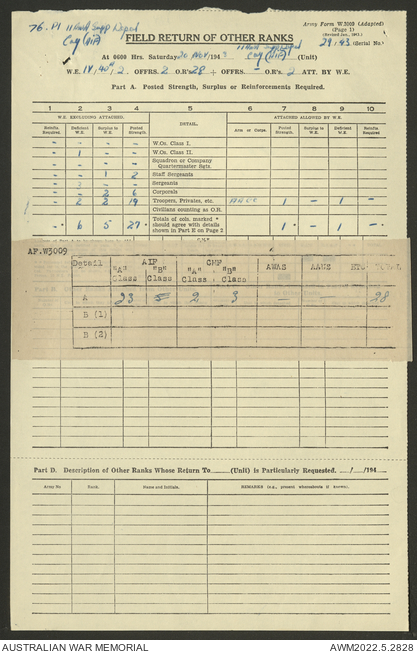 76. Pl
FIELD RETURN OF OTHER RANKS
Army Form W.3009 (Adapted)
(Page 1)
29/43 (Serial No.)
Coy (AIF)
At 0600 Hrs. Saturday 20 Nov/1943 Coy (AIF) (Unit)
W.E. OFFRS. 2 O.R's 28 + OFFRS. - O.R's 2 ATT. BY W.E.
Part A. Posted Strength, Surplus or Reinforcements Required.
1 2 3 4 5 6 7 8 9 10
W.E. EXCLUDING ATTACHED. DETAIL. ATTACHED ALLOWED BY W.E.
Reinfts. Required. Deficient W.E. Surplus to W.E. Posted Strength. Arm or Corps. Posted Strength. Surplus to W.E. Deficient W.E. Reinfts. Required.
- - - - W.Os. Class I.
- 1 - - W.Os. Class II.
- - - - Squadron or Company Quartermaster Sgts.
- - 1 2 Staff Sergeants
- 2 - - Sergeants
- - 2 6 Corporals
- 2 2 19 Troopers, Privates, etc. 1 - 1 -
Civilians counting as O.R.
- 6 5 27 Totals of cols. marked * should agree with details shown in Part E on Page 2 1 - 1 -
AF.W3009
Detail AIF CMF AWAS TOTAL
"A" Class "B" Class "A" Class "B" Class
A 23 5 2 3 - - 28
B (1)
B (2)
Part D. Description of Other Ranks Whose Return To (Unit) is Particularly Requested. / /194
Army No. Rank. Name and Initials. REMARKS (e.g., present whereabouts if known).
AUSTRALIAN WAR MEMORIAL
AWM2022.5.2828